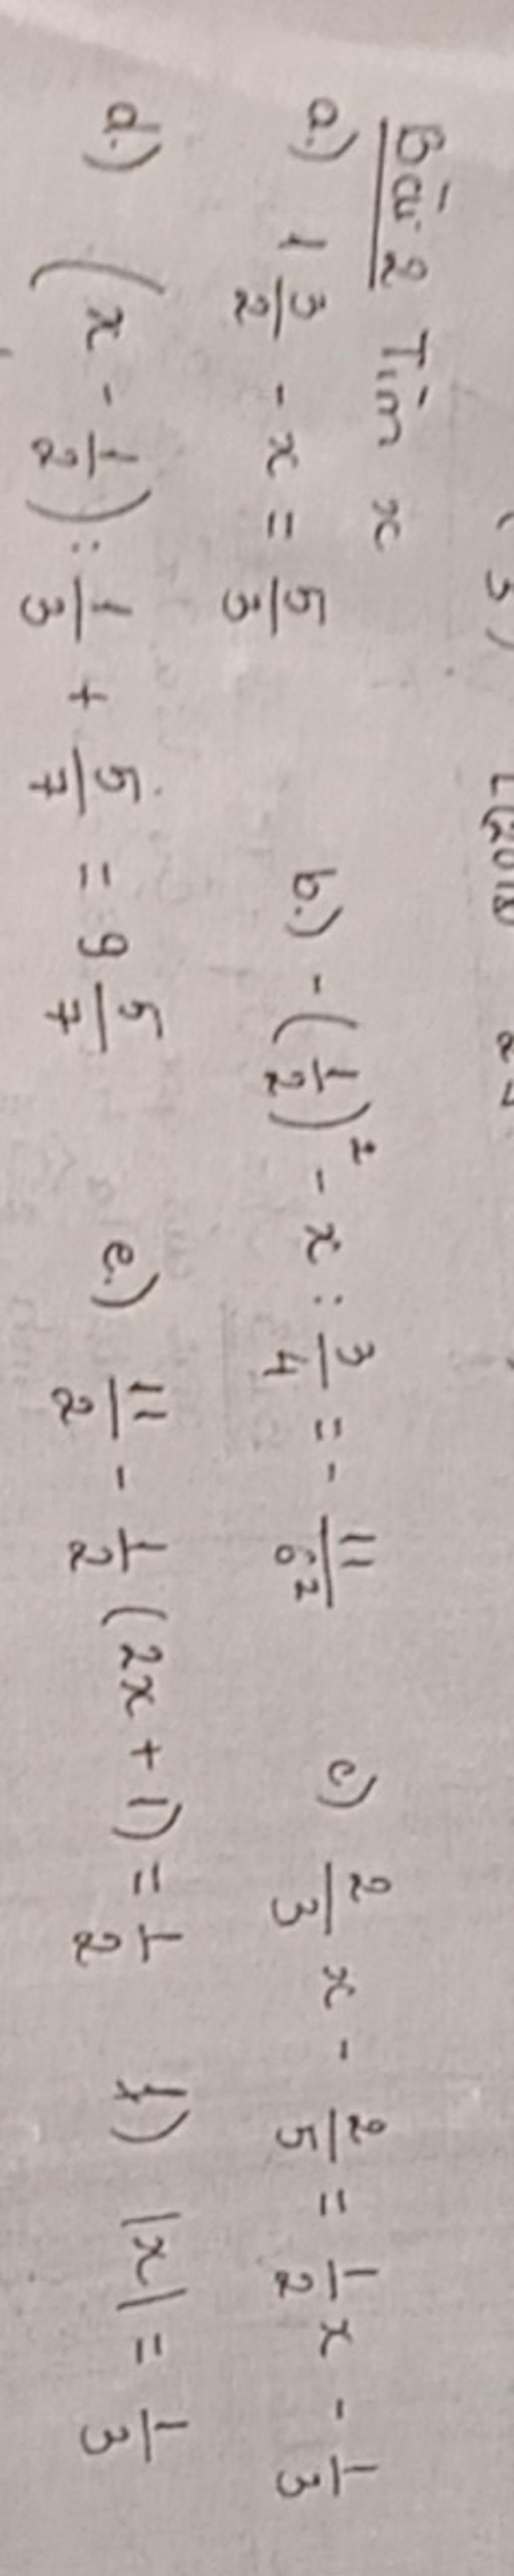 Bài 2 Tìm x
a.) 1 3/2 - x = 5/3 b.) - (1/2)² - x : 3/4 = - 11/6² c) 2/3 x - 2/5 = 1/2 x - 1/3
d.) (x - 1/2) : 1/3 + 5/7 = 9 5/7 e.) 11/2 - 1/2 (2x + 1) = 1/2 f) |x| = 1/3